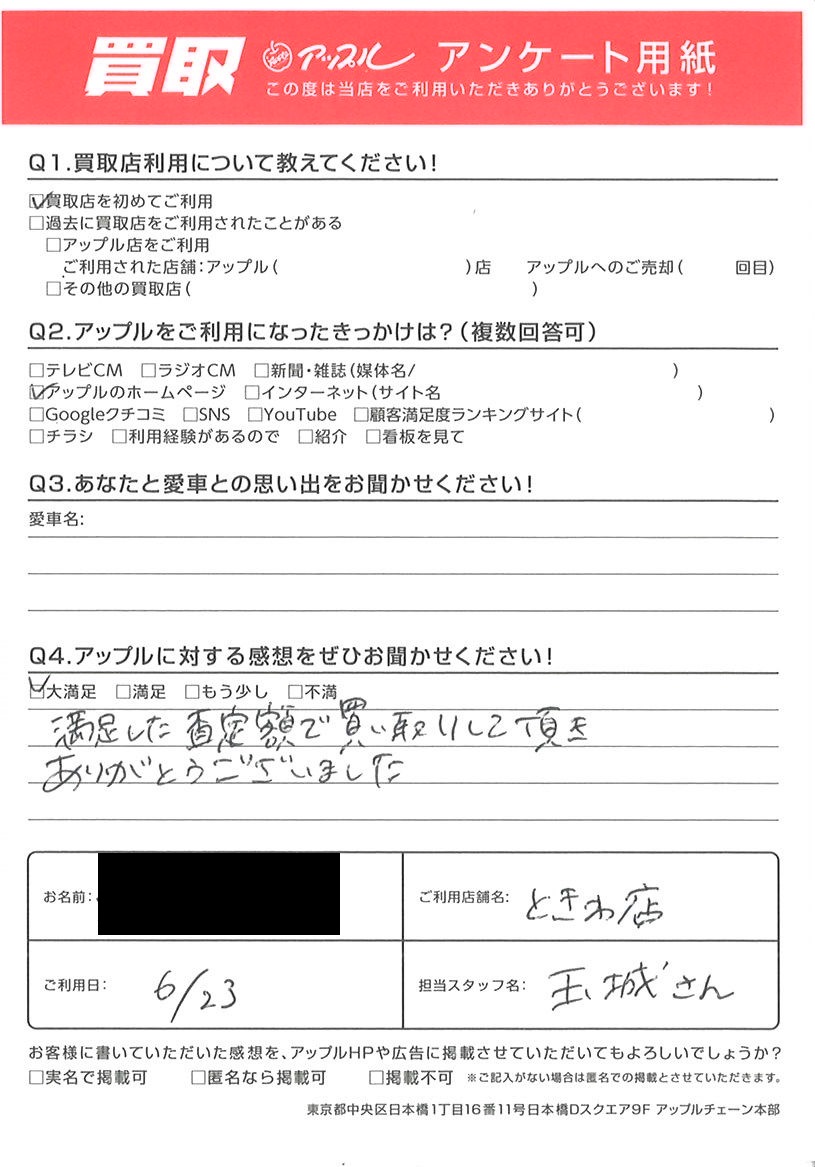 買取 アップル アンケート用紙
この度は当店をご利用いただきありがとうございます!
Q1.買取店利用について教えてください!
☑買取店を初めてご利用
□過去に買取店をご利用されたことがある
□アップル店をご利用
ご利用された店舗:アップル( )店 アップルへのご売却( 回目)
□その他の買取店( )
Q2.アップルをご利用になったきっかけは?(複数回答可)
□テレビCM □ラジオCM □新聞・雑誌(媒体名/ )
☑アップルのホームページ □インターネット(サイト名 )
□Googleクチコミ □SNS □YouTube □顧客満足度ランキングサイト( )
□チラシ □利用経験があるので □紹介 □看板を見て
Q3.あなたと愛車との思い出をお聞かせください!
愛車名:
Q4.アップルに対する感想をぜひお聞かせください!
☑大満足 □満足 □もう少し □不満
満足した査定額で買い取りして頂き
ありがとうございました
お名前:
ご利用店舗名: ときわ店
ご利用日: 6/23
担当スタッフ名: 玉城さん
お客様に書いていただいた感想を、アップルHPや広告に掲載させていただいてもよろしいでしょうか?
□実名で掲載可 □匿名なら掲載可 □掲載不可 ※ご記入がない場合は匿名での掲載とさせていただきます。
東京都中央区日本橋1丁目16番11号日本橋Dスクエア9F アップルチェーン本部